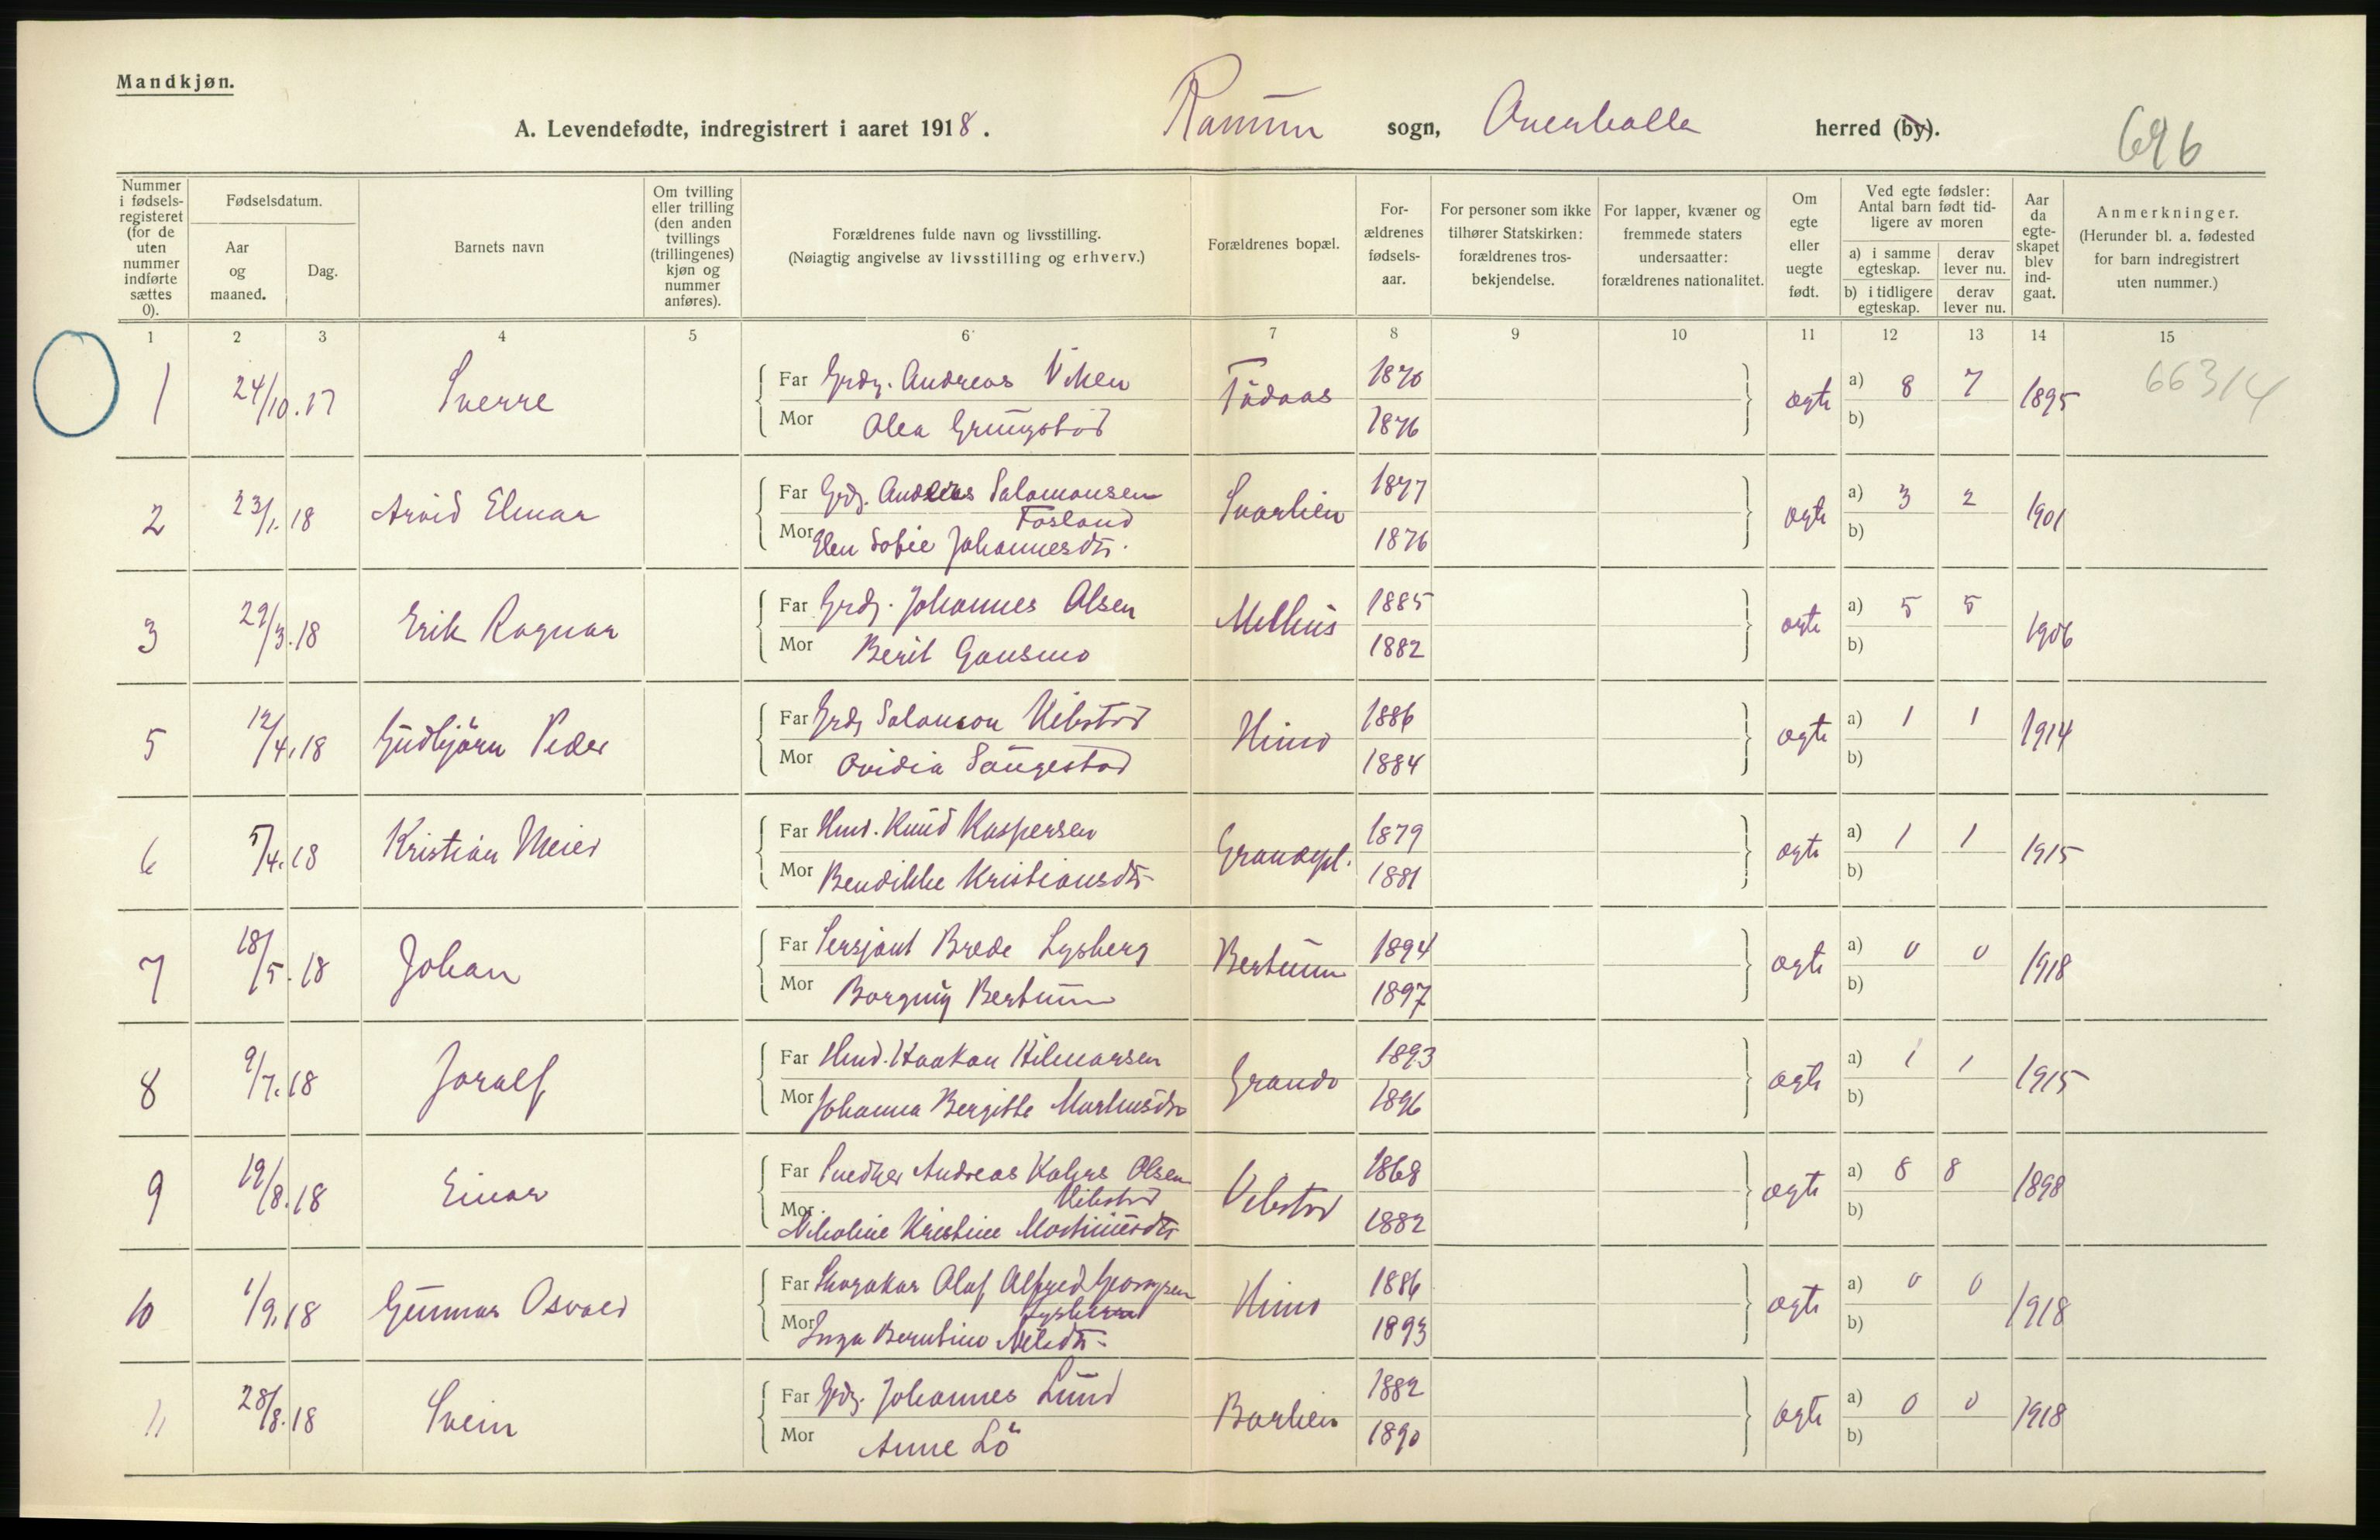 Mandkjøn.
A. Levendefødte, indregistrert i aaret 1918. Ranum sogn, Overhalla herred (by).
696
Nummer i fødselsregisteret (for de uten nummer indførte sættes 0).
Fødselsdatum.
Aar og maaned.
Dag.
Barnets navn
Om tvilling eller trilling (den anden tvillings (trillingenes) kjøn og nummer anføres).
Forældrenes fulde navn og livsstilling.
(Nøiagtig angivelse av livsstilling og erhverv.)
Forældrenes bopæl.
Forældrenes fødselsaar.
For personer som ikke tilhører Statskirken: forældrenes trosbekjendelse.
For lapper, kvæner og fremmede staters undersaatter: forældrenes nationalitet.
Om egte eller uegte født.
Ved egte fødsler: Antal barn født tidligere av moren
a) i samme egteskap. derav lever nu.
b) i tidligere egteskap. derav lever nu.
Aar da egteskapet blev indgaat.
Anmerkninger.
(Herunder bl. a. fødested for barn indregistrert uten nummer.)
1 2 3 4 5 6 7 8 9 10 11 12 13 14 15
1 24/10.17 Sverre Far Grdr. Andreas Viken 1870 ægte a) 8 7 1895 66314
Mor Olea Grungstad 1876 b)
2 23/1.18 Arvid Elmar Far Grdr. Andreas Salamonsen Svarlien 1877 ægte a) 3 2 1901
Fosland
Mor Elen Sofie Johannesdtr. 1876 b)
3 29/3.18 Erik Ragnar Far Grdr. Johannes Olsen Melhus 1885 ægte a) 5 5 1906
Mor Berit Gansmo 1882 b)
5 12/4.18 Gudbjörn Peder Far Grdr Salamon Vibstad Himo 1886 ægte a) 1 1 1914
Mor Ovidia Saugestad 1884 b)
6 5/4.18 Kristian Meier Far Hmd. Knud Kaspersen 1879 ægte a) 1 1 1915
Mor Bendikke Kristiansdtr 1881 b)
7 18/5.18 Johan Far Sersjant Brede Lysberg Bertnum 1894 ægte a) 0 0 1918
Mor Borgny Bertnum 1897 b)
8 9/7.18 Joralf Far Hmd. Haakon Hilmarsen Grande 1893 ægte a) 1 1 1915
Mor Johanna Bergitte Markusdtr 1896 b)
9 19/8.18 Einar Far Snedker Andreas Kohrs Olsen Vibstad 1868 ægte a) 8 8 1898
Vibstad
Mor Nikoline Kristine Martinusdtr 1882 b)
10 1/9.18 Gunnar Osvald Far Skogakar Olaf Alfred Georgsen Himo 1886 ægte a) 0 0 1918
Mor Inga Berntine Nilsdtr. 1893 b)
11 28/8.18 Svein Far Grdr. Johannes Lund Barlien 1882 ægte a) 0 0 1918
Mor Anne Lö 1890 b)